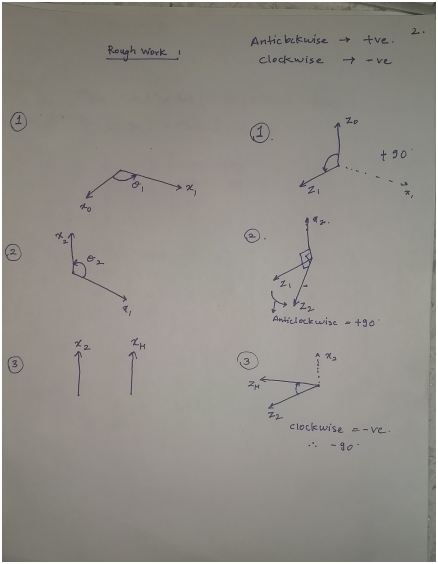 2.
Rough Work :
Anticlockwise → +ve.
Clockwise → -ve
1
θ1
x0
x1
1.
Z0
+90
Z1
x1
2
x2
θ2
x1
2.
x2.
Z1
Z2
Anticlockwise = +90
3
x2
xH
3
x2
ZH
Z2
clockwise = -ve.
∴ -90